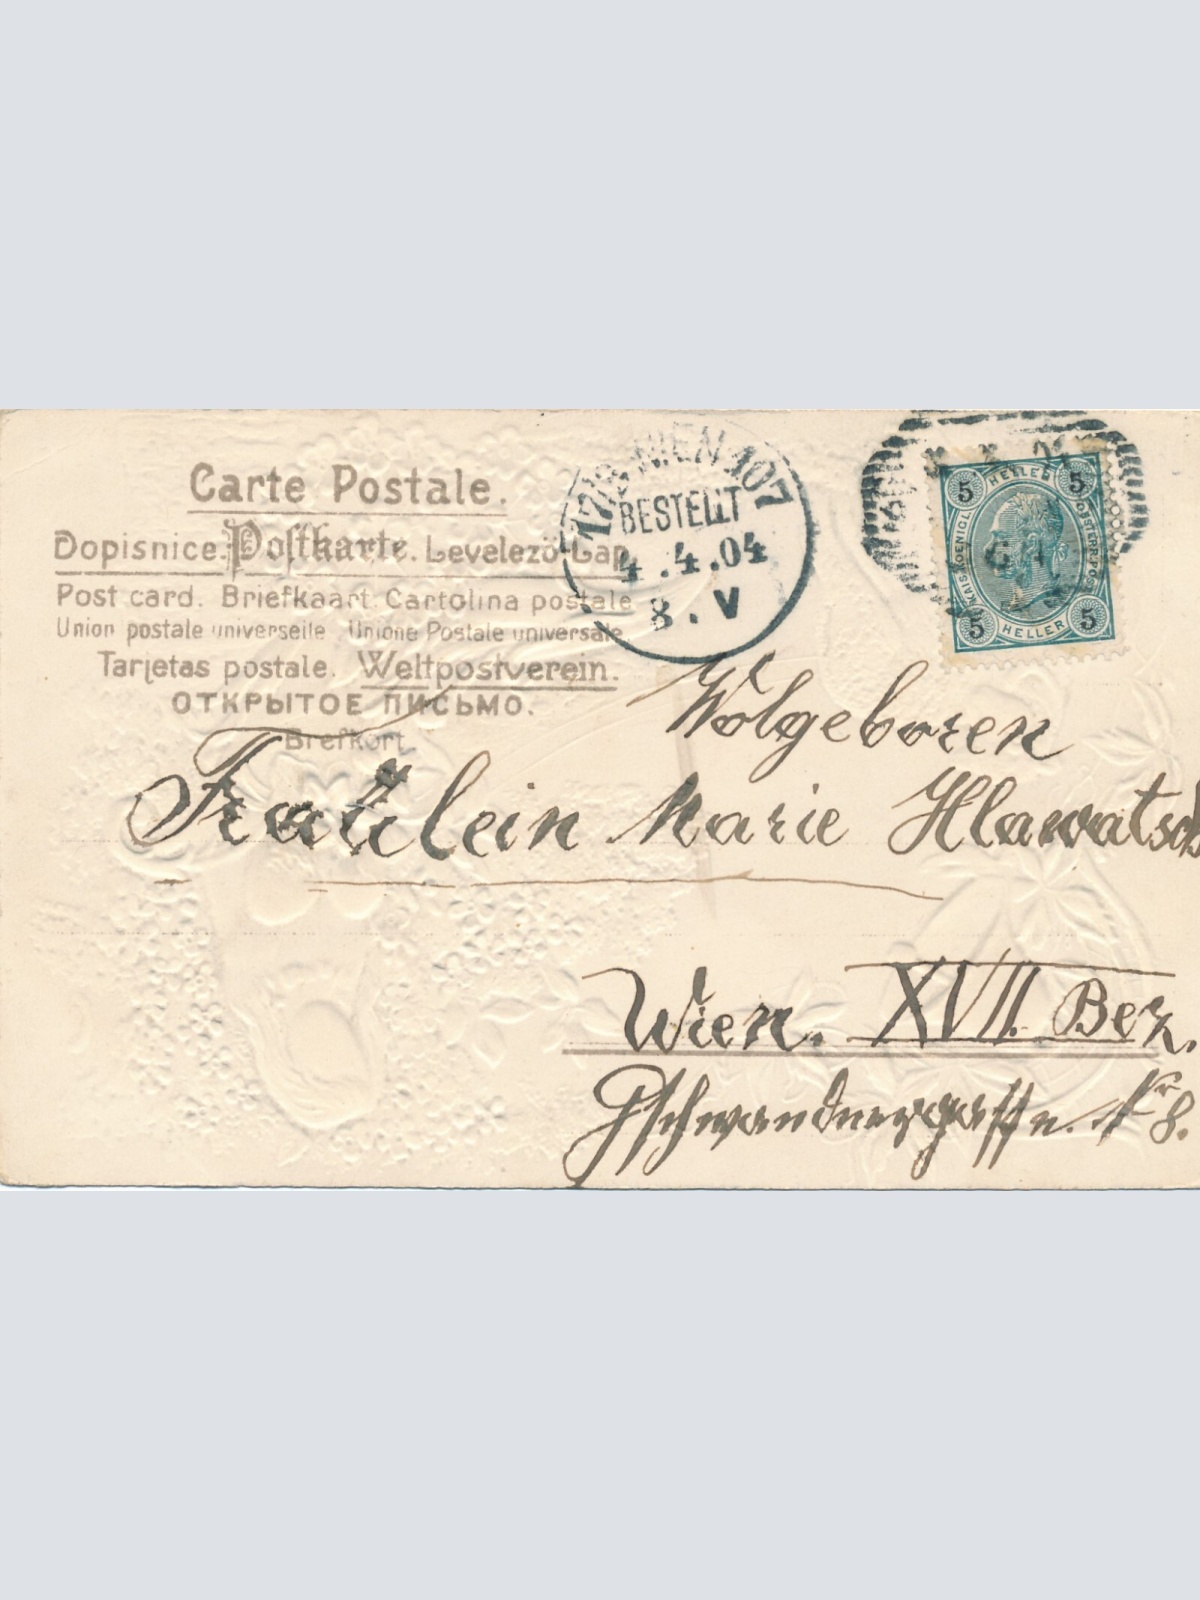 Carte Postale.
Dopisnice. Postkarte. Levelező-Lap.
Post card. Briefkaart. Cartolina postale
Union postale universelle Unione Postale universale
Tarjetas postale. Weltpostverein.
ОТКРЫТОЕ ПИСЬМО.
Brefkort
WIEN 107
BESTELLT
4.4.04
8.V
5 HELLER 5
KAIS. KOENIGL. OESTERR. POST
5 HELLER 5
Wolgeboren
Fräulein Marie Hlawatsch
Wien. XVII. Bez.
Gschwandnergasse. Nr 8.